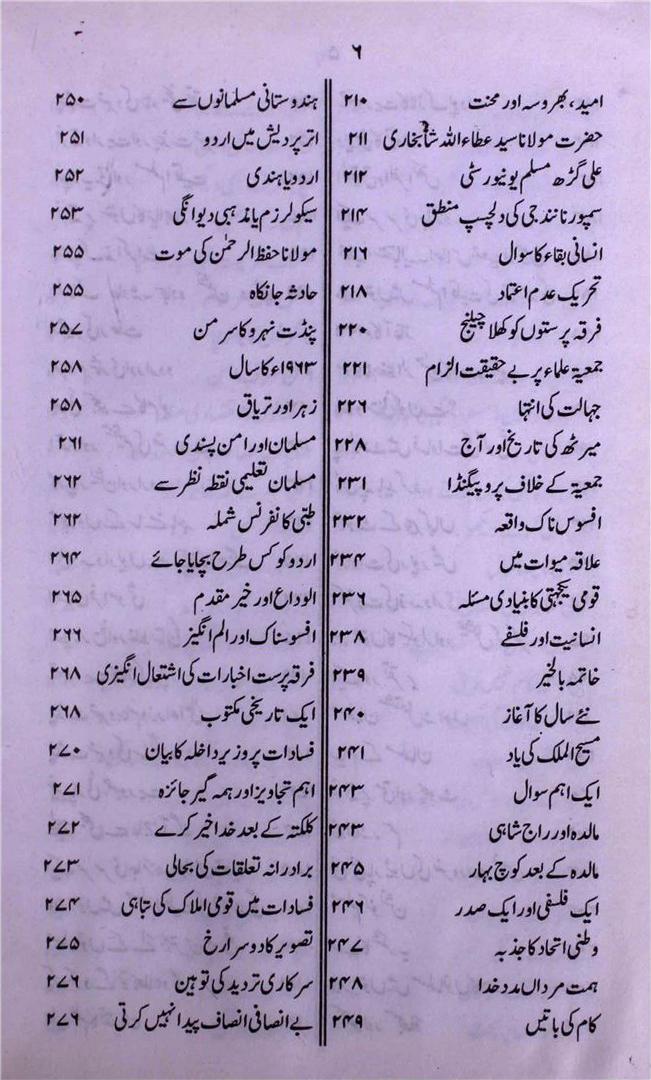 ۶
امید، بھروسہ اور محنت ۲۱۰
حضرت مولانا سید عطاء اللہ شاہ بخاریؒ ۲۱۱
علی گڑھ مسلم یونیورسٹی ۲۱۲
سمپورنانند جی کی دلچسپ منطق ۲۱۴
انسانی بقاء کا سوال ۲۱۶
تحریک عدم اعتماد ۲۱۸
فرقہ پرستوں کو کھلا چیلنج ۲۲۰
جمعیۃ علماء پر بے حقیقت الزام ۲۲۱
جہالت کی انتہا ۲۲۶
میرٹھ کی تاریخ اور آج ۲۲۸
جمعیۃ کے خلاف پروپیگنڈا ۲۳۱
افسوس ناک واقعہ ۲۳۲
علاقہ میوات میں ۲۳۴
قومی یکجہتی کا بنیادی مسئلہ ۲۳۶
انسانیت اور فلسفے ۲۳۸
خاتمہ بالخیر ۲۳۹
نئے سال کا آغاز ۲۴۰
مسیح الملک کی یاد ۲۴۱
ایک اہم سوال ۲۴۳
مالدہ اور راج شاہی ۲۴۳
مالدہ کے بعد کوچ بہار ۲۴۵
ایک فلسفی اور ایک صدر ۲۴۶
وطنی اتحاد کا جذبہ ۲۴۷
ہمت مرداں مدد خدا ۲۴۸
کام کی باتیں ۲۴۹
ہندوستانی مسلمانوں سے ۲۵۰
اتر پردیش میں اردو ۲۵۱
اردو یا ہندی ۲۵۲
سیکولرزم یا مذہبی دیوانگی ۲۵۳
مولانا حفظ الرحمٰن کی موت ۲۵۵
حادثہ جانکاہ ۲۵۵
پنڈت نہرو کا سرمن ۲۵۷
۱۹۶۳ء کا سال ۲۵۸
زہر اور تریاق ۲۵۸
مسلمان اور امن پسندی ۲۶۱
مسلمان تعلیمی نقطہ نظر سے ۲۶۲
طبی کانفرنس شملہ ۲۶۲
اردو کو کس طرح بچایا جائے ۲۶۴
الوداع اور خیر مقدم ۲۶۵
افسوسناک اور الم انگیز ۲۶۶
فرقہ پرست اخبارات کی اشتعال انگیزی ۲۶۸
ایک تاریخی مکتوب ۲۶۸
فسادات پر وزیر داخلہ کا بیان ۲۷۰
اہم تجاویز اور ہمہ گیر جائزہ ۲۷۱
کلکتہ کے بعد خدا خیر کرے ۲۷۲
برادرانہ تعلقات کی بحالی ۲۷۳
فسادات میں قومی املاک کی تباہی ۲۷۴
تصویر کا دوسرا رخ ۲۷۵
سرکاری تردید کی توہین ۲۷۶
بے انصافی انصاف پیدا نہیں کرتی ۲۷۶